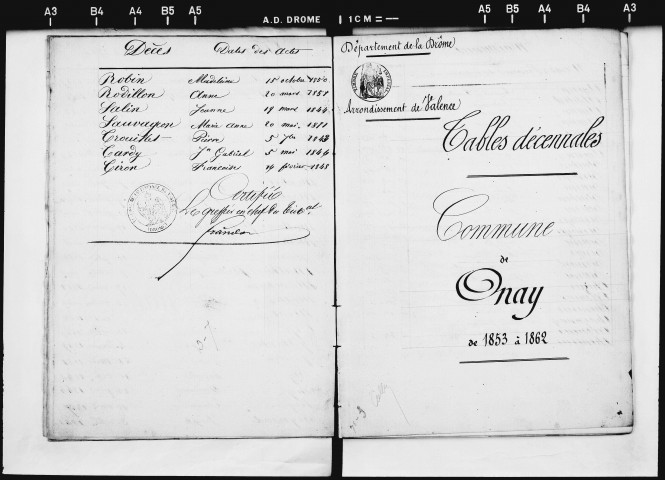 A3 B4 A4 B5 A5 A.D. DROME 1 CM = A5 B5 A4 B4 A3
Décès Dates des actes
Robin Madeleine 15 octobre 1850
Rodillon Anne 20 mars 1851
Salin Jeanne 19 mars 1844
Sauvageon Marie Anne 20 mai 1851
Pierre 5
Tardy Jn Gabriel 5 mai 1844
Giron Françoise 14 février 1848
Certifié
Le greffier en chef du tribunal
Département de la Drôme
Arrondissement de Valence
Tables décennales
Commune
de
Onay
de 1853 à 1862